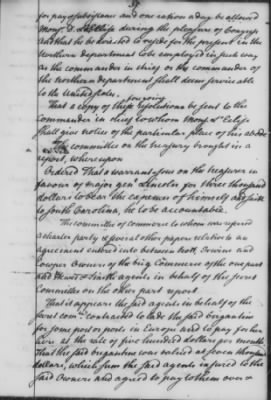 for pay & subsistence and one ration a day be allowed
Mons^r. D. during the pleasure of Congress
and that he be directed to reside for the present in the
Northern department to be employed in such way
as the commander in chief or the commander of
the Northern department shall deem serviceable
to the United States.
foregoing
That a copy of these resolutions be sent to the
Commander in chief to whom Mons^r. 
shall give notice of the particular place of his abode
The committee on the treasury brought in a
report, whereupon
Ordered That a warrant issue on the treasurer in
favour of major gen^l Lincoln for three thousand
dollars to bear the expences of himself and suite
to South Carolina, he to be accountable.
The committee of commerce to whom were referred
a charter party & several other papers relative to an
agreement entered into between Irwin and
Cowper Owners of the brig Commerce of the one part
and Hewes & Smith agents in behalf of the secret
Committee on the other part report.
That it appears the said agents in behalf of the
secret com^ee. contracted to lade the said brigantine
for some port or ports in Europe and to pay for her
hire at the rate of five hundred dollars per month
that the said brigantine was valued at seven thousand
dollars, which sum the said agents insured to the
said Owners and agreed to pay to them over &